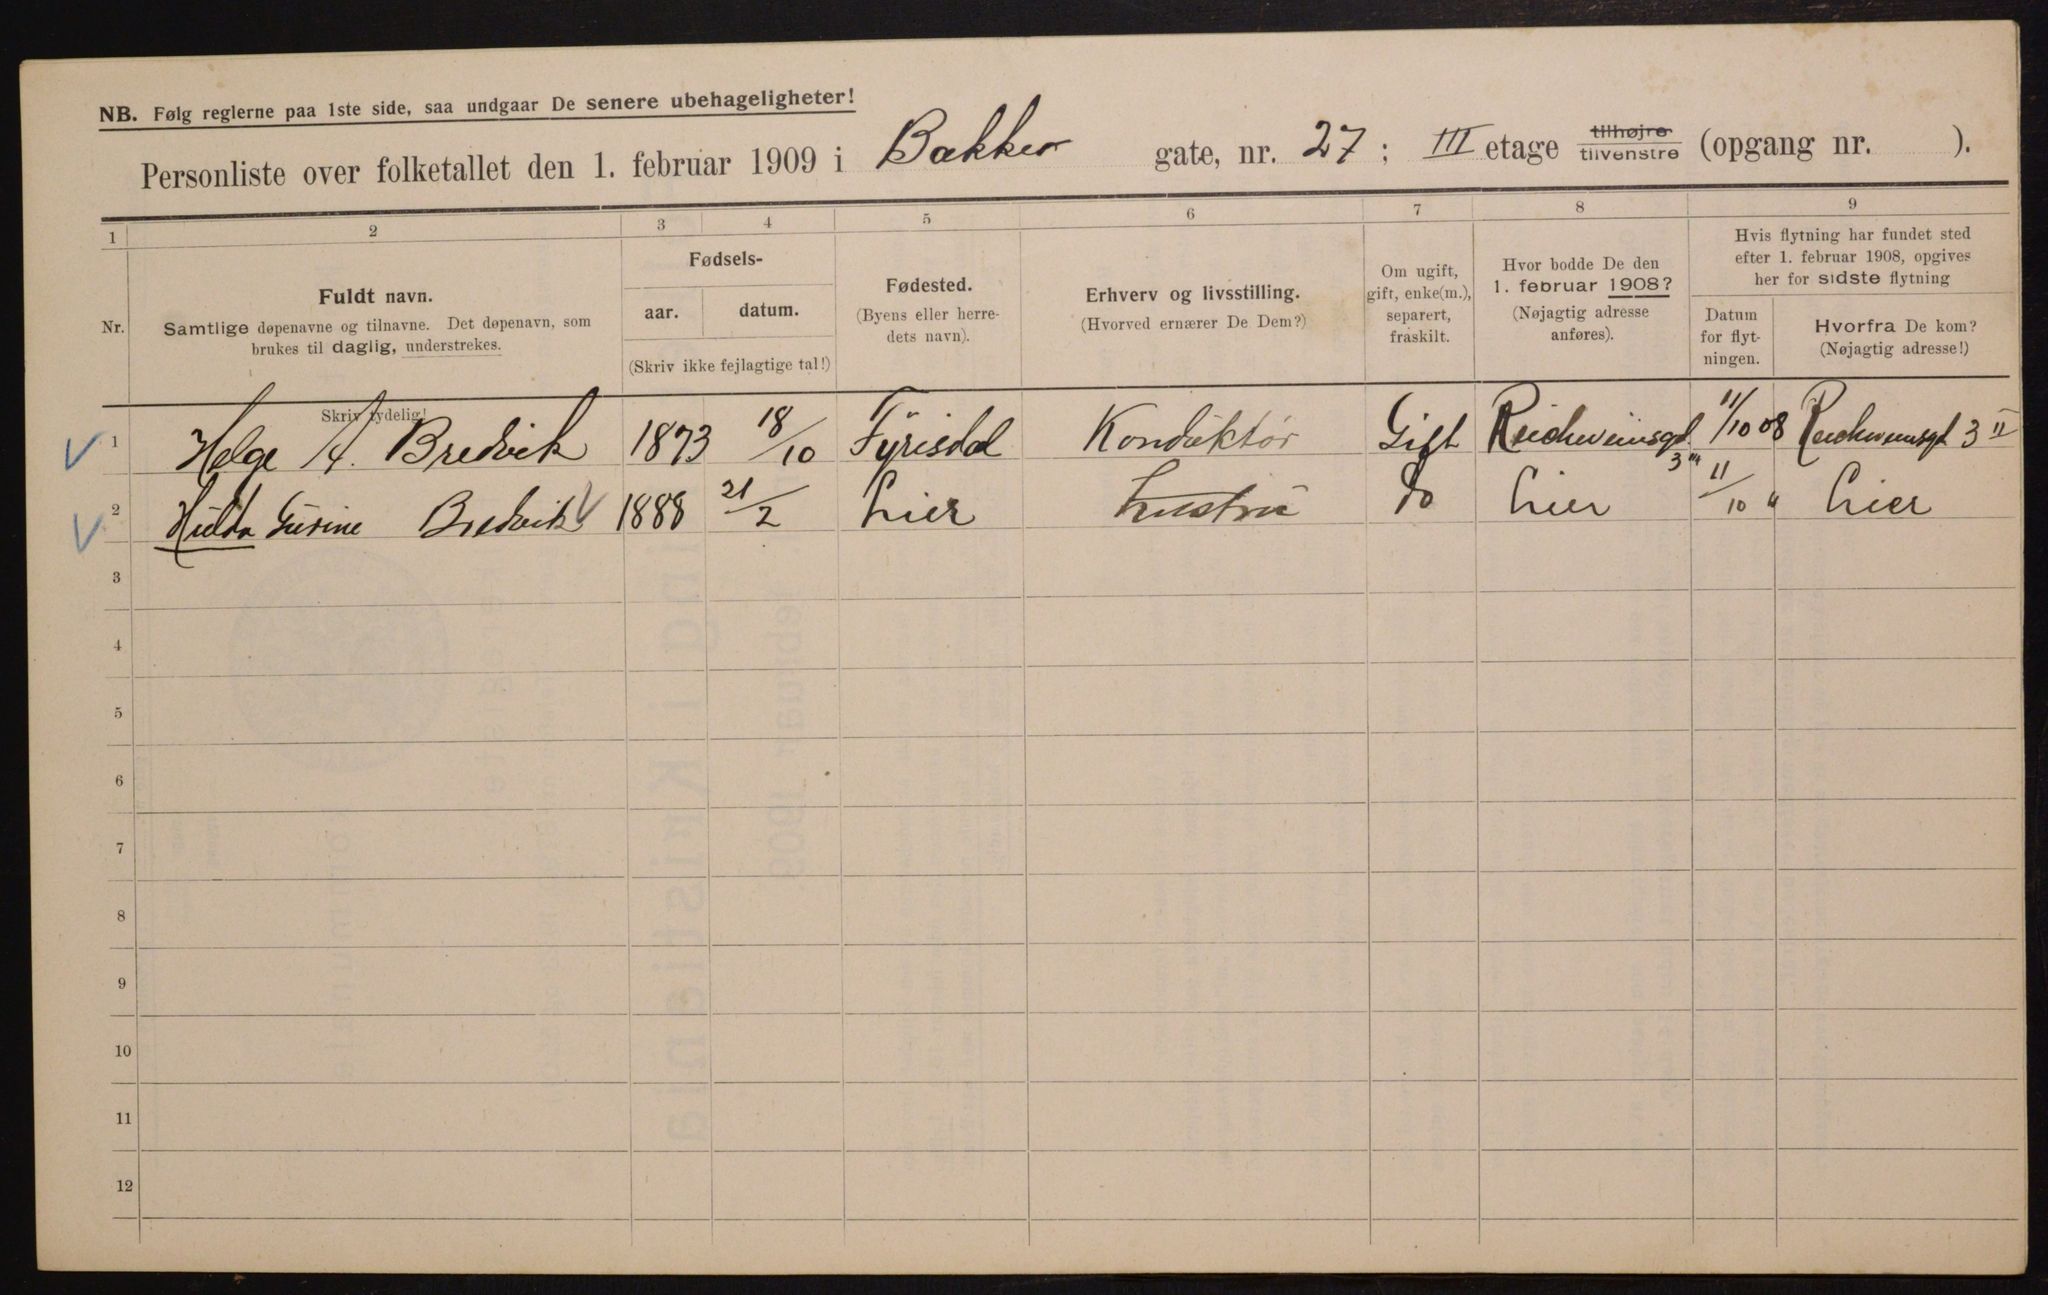 NB. Følg reglerne paa 1ste side, saa undgaar De senere ubehageligheter!
Personliste over folketallet den 1. februar 1909 i Bakker gate, nr. 27; III etage tilhøjre tilvenstre (opgang nr. ).
1 2 3 4 5 6 7 8 9
Nr.
Fuldt navn.
Samtlige døpenavne og tilnavne. Det døpenavn, som
brukes til daglig, understrekes.
Skriv tydelig!
Fødsels-
aar. datum.
(Skriv ikke fejlagtige tal!)
Fødested.
(Byens eller herre-
dets navn).
Erhverv og livsstilling.
(Hvorved ernærer De Dem?)
Om ugift,
gift, enke(m.),
separert,
fraskilt.
Hvor bodde De den
1. februar 1908?
(Nøjagtig adresse
anføres).
Hvis flytning har fundet sted
efter 1. februar 1908, opgives
her for sidste flytning
Datum
for flyt-
ningen.
Hvorfra De kom?
(Nøjagtig adresse!)
1 Helge A. Bredvik 1873 18/10 Fyrisdal Konduktør Gift Reichweinsgt 3 III 11/10 08 Reichweinsgt 3 II
2 Hulda Gurine Bredvik 1888 21/2 Lier Hustru do Lier 11/10 " Lier
3
4
5
6
7
8
9
10
11
12